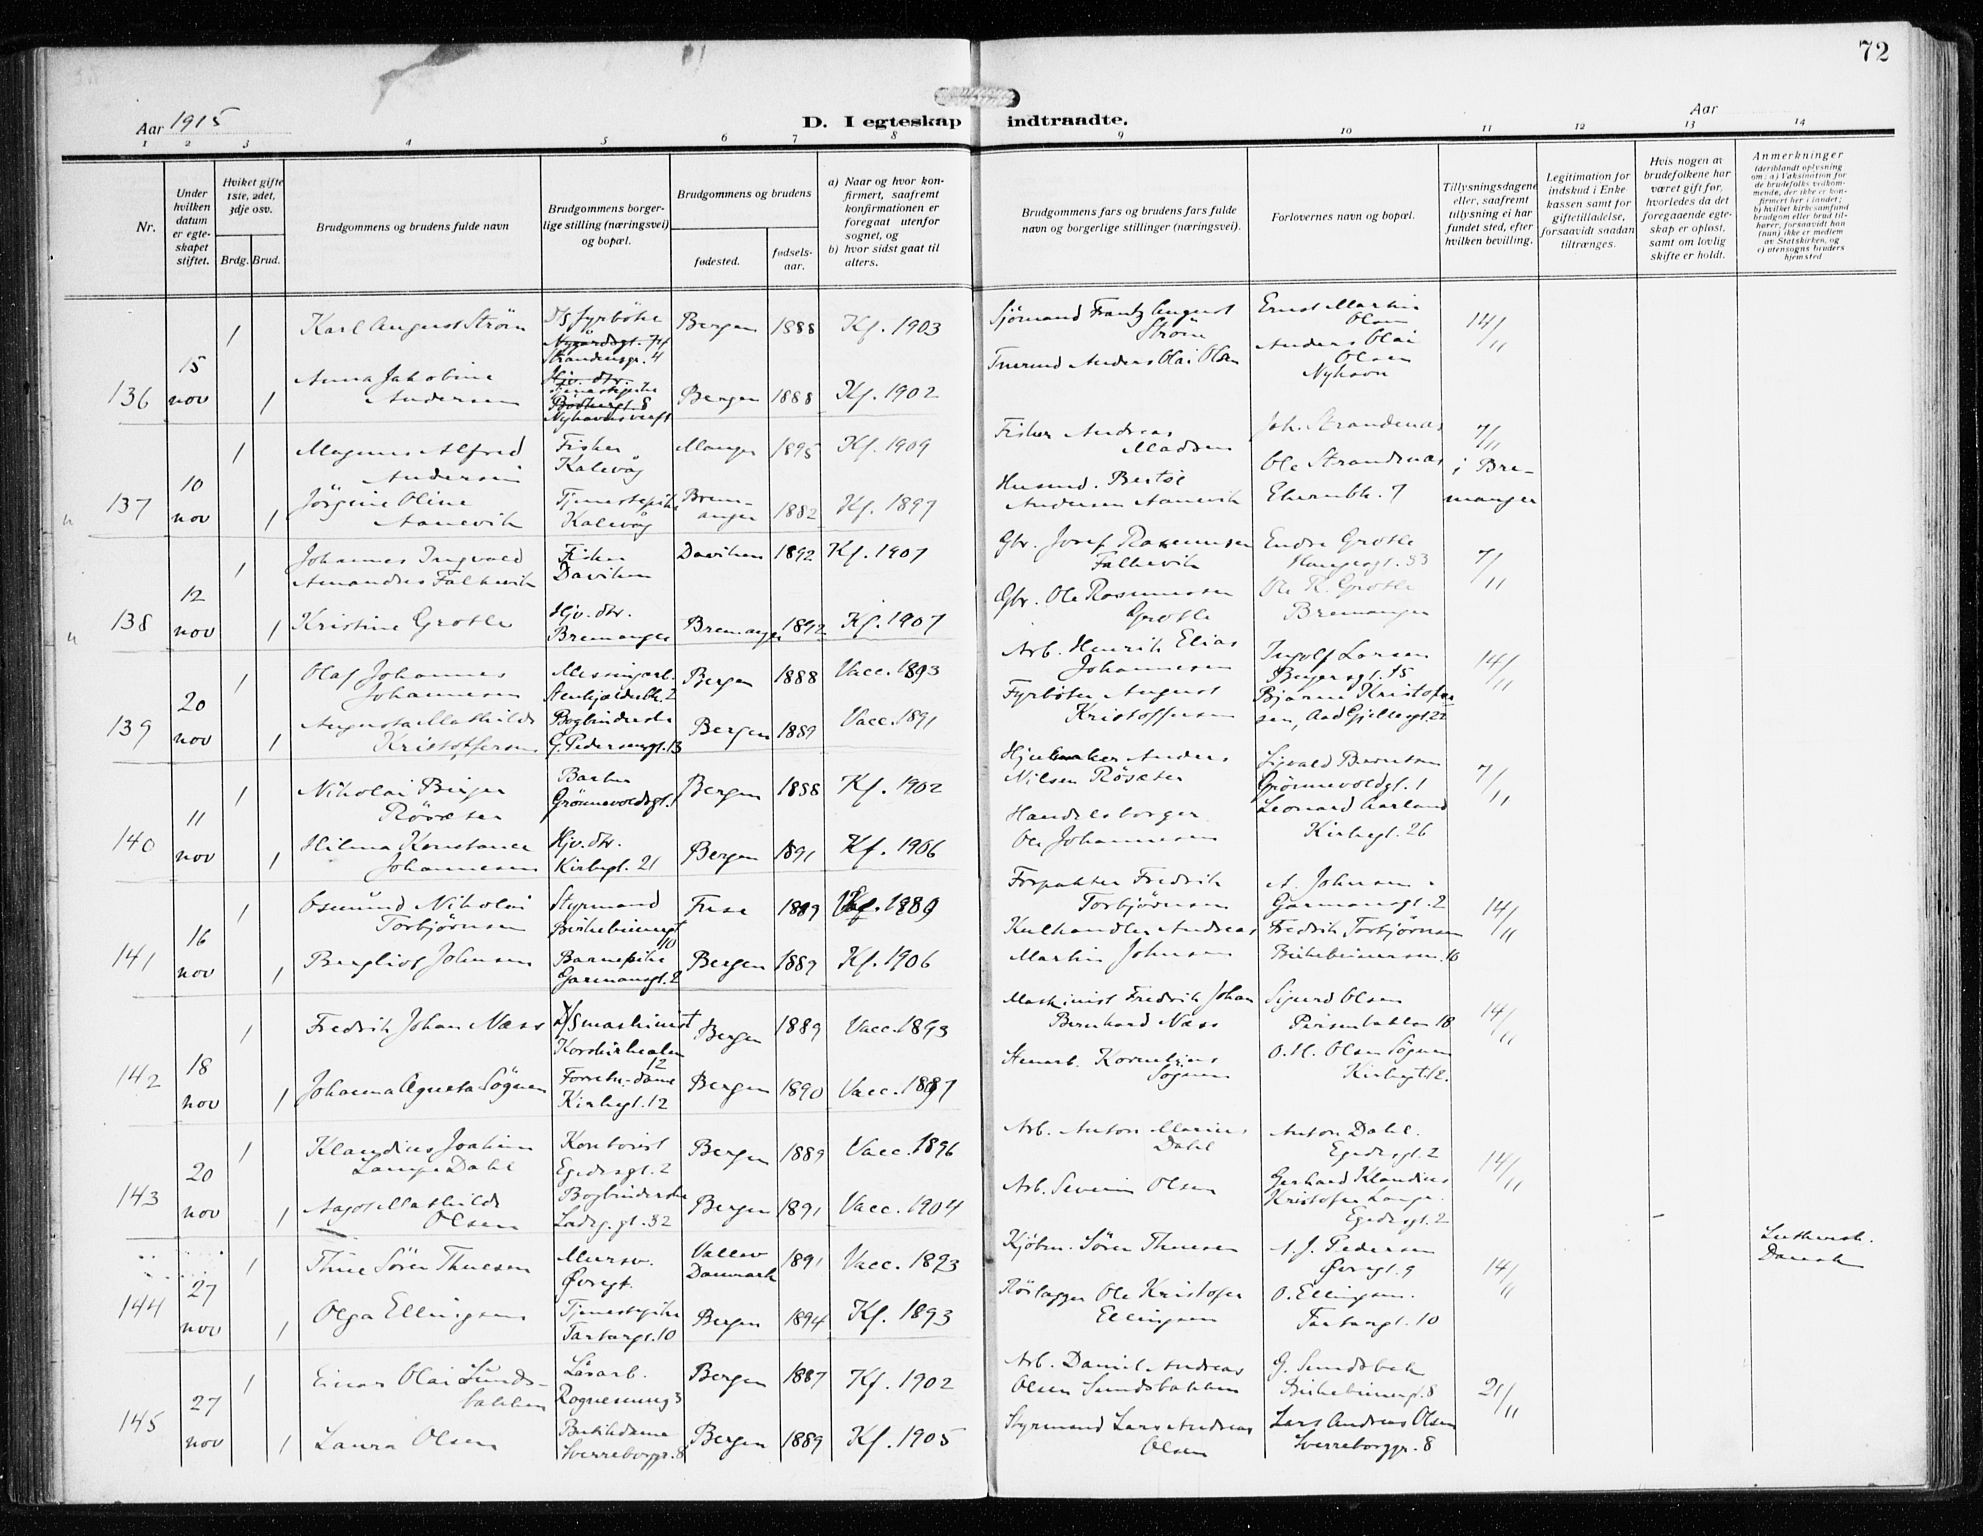 72
Aar 1915
D. I egteskap indtraadte.
Aar
1 2 3 4 5 6 7 8 9 10 11 12 13 14
Nr.
Under hvilken datum er egteskapet stiftet.
Hviket gifte 1ste, 2det, 3dje osv.
Brdg. Brud.
Brudgommens og brudens fulde navn
Brudgommens borgerlige stilling (næringsvei) og bopæl.
Brudgommens og brudens
fødested.
fødselsaar.
a) Naar og hvor konfirmert, saafremt konfirmationen er foregaat utenfor sognet, og
b) hvor sidst gaat til alters.
Brudgommens fars og brudens fars fulde navn og borgerlige stillinger (næringsvei).
Forlovernes navn og bopæl.
Tillysningsdagene eller, saafremt tillysning ei har fundet sted, efter hvilken bevilling.
Legitimation for indskud i Enkekassen samt for giftetilladelse, forsaavidt saadan tiltrænges.
Hvis nogen av brudefolkene har været gift før, hvorledes da det foregaaende egteskap er opløst, samt om lovlig skifte er holdt.
Anmerkninger
136
15 nov
1
Karl August Strøm
D/s fyrbøter
Nygårdsgt. 74
Strandensgr. 4
Bergen 1888 Kf. 1903
Sjömand Frantz August Strøm
Ernst Martin Olsen
14/11
1
Anna Jakobine Andersen
Hjv. dtr.
Tjenestepike
Nyhavnsverft
Bergen 1888 Kf. 1902
Anders Olai Olsen
Anders Olai Olsen
Nyhavn
137
10 nov
1
Magnus Alfred Andersen
Fisker
Kalevåg
Manger 1895 Kf. 1909
Fisker Andreas Madsen
Joh. Strandenas
7/11
i Bremanger
1
Jörgine Oline Aanevik
Tjenestepike
Kalevåg
Bremanger 1882 Kf. 1897
Husmd. Bertel Andersen Aanevik
Ole Strandenas
138
12 nov
1
Johannes Ingvald Amandus Falkevik
Fisker
Daviken
Daviken 1892 Kf. 1907
Gbr. Josef Rasmussen Falkevik
Endre Grotle
7/11
1
Kristine Grotle
Hjv. dtr.
Bremanger
Bremanger 1892 Kf. 1907
Gbr. Ole Rasmussen Grotle
Ole R. Grotle
Bremanger
139
20 nov
1
Olaf Johannes Johannesen
Messingarb.
Bergen 1888 Vacc. 1893
Arb. Henrik Elias Johannesen
Ingolf Larsen
14/11
1
Augusta Mathilde Kristoffersen
Bogbinderske
G. Pedersensgt. 13
Bergen 1889 Vacc. 1891
Fyrbøter August Kristoffersen
Bjarne Kristoffersen,
140
11 nov
1
Nikolai Birger Rösæter
Barber
Grönnevoldsgt. 1
Bergen 1888 Kf. 1902
Hjulmaker Anders Nilsen Rösæter
Sigvald Berntsen
Grönnevoldgt. 1
7/11
1
Hilma Konstance Johannesen
Hjv. dtr.
Kirkegt. 21
Bergen 1891 Kf. 1906
Handelsborger Ole Johannesen
Leonard Aarland
Kirkegt. 26
141
16 nov
1
Osmund Nikolai Torbjörnsen
Styrmand
Birkebeinergt. 10
1889
Forpakter Fredrik Torbjörnsen
A. Johnsen
Garmansgt. 2
14/11
1
Bergliot Johnsen
Barnepike
Garmansgt. 2
Bergen 1889 Kf. 1906
Kulhandler Andreas Martin Johnsen
Fredrik Torbjörnsen
142
18 nov
1
Fredrik Johan Næss
D/s maskinist
Korskirkealm. 12
Bergen 1889 Vacc. 1893
Maskinist Fredrik Johan Bernhard Næss
Sigurd Olsen
14/11
1
Johanna Agneta Sögnen
Forretn.-dame
Kirkegt. 12
Bergen 1890 Vacc. 1897
Stenarb. Kornelius Sögnen
O. M. Olsen Sögnen
Kirkegt. 12.
143
20 nov
1
Klaudius Joakim Lampe Dahl
Kontorist
Egedesgt. 2
Bergen 1889 Vacc. 1896
Arb. Anton Marius Dahl
Anton Dahl.
Egedesgt. 2
14/11
1
Aagot Mathilde Olsen
Bogbinderske
Ladeg. gt. 32
Bergen 1891 Vacc. 1904
Arb. Severin Olsen
Gerhard Klaudius Kristofer Lampe
Egedesgt. 2
144
27 nov
1
Thue Sören Thuesen
Mursv.
Øvregt.
Vallev Danmark 1891 Vacc. 1893
Kjöbm. Sören Thuesen
A. J. Pedersen
Øvregt. 9
14/11
Luthersk.
Dansk
1
Olga Ellingsen
Tjenestepike
Tartargt. 10
Bergen 1894 Kf. 1893
Rörlægger Ole Kristofer Ellingsen
O. Ellingsen.
Tartargt. 10
145
27 nov
1
Einar Olai Sundsbakken
Løsarb.
Bergen 1887 Kf. 1902
Arb. Daniel Andreas Olsen Sundsbakken
G. Sundsbak
Birkebeinergt. 8
21/11
1
Laura Olsen
Butikdame
Sverresborggt. 8
Bergen 1889 Kf. 1905
Styrmand Lars Andreas Olsen
Lars Andreas Olsen
Sverresborggt. 8